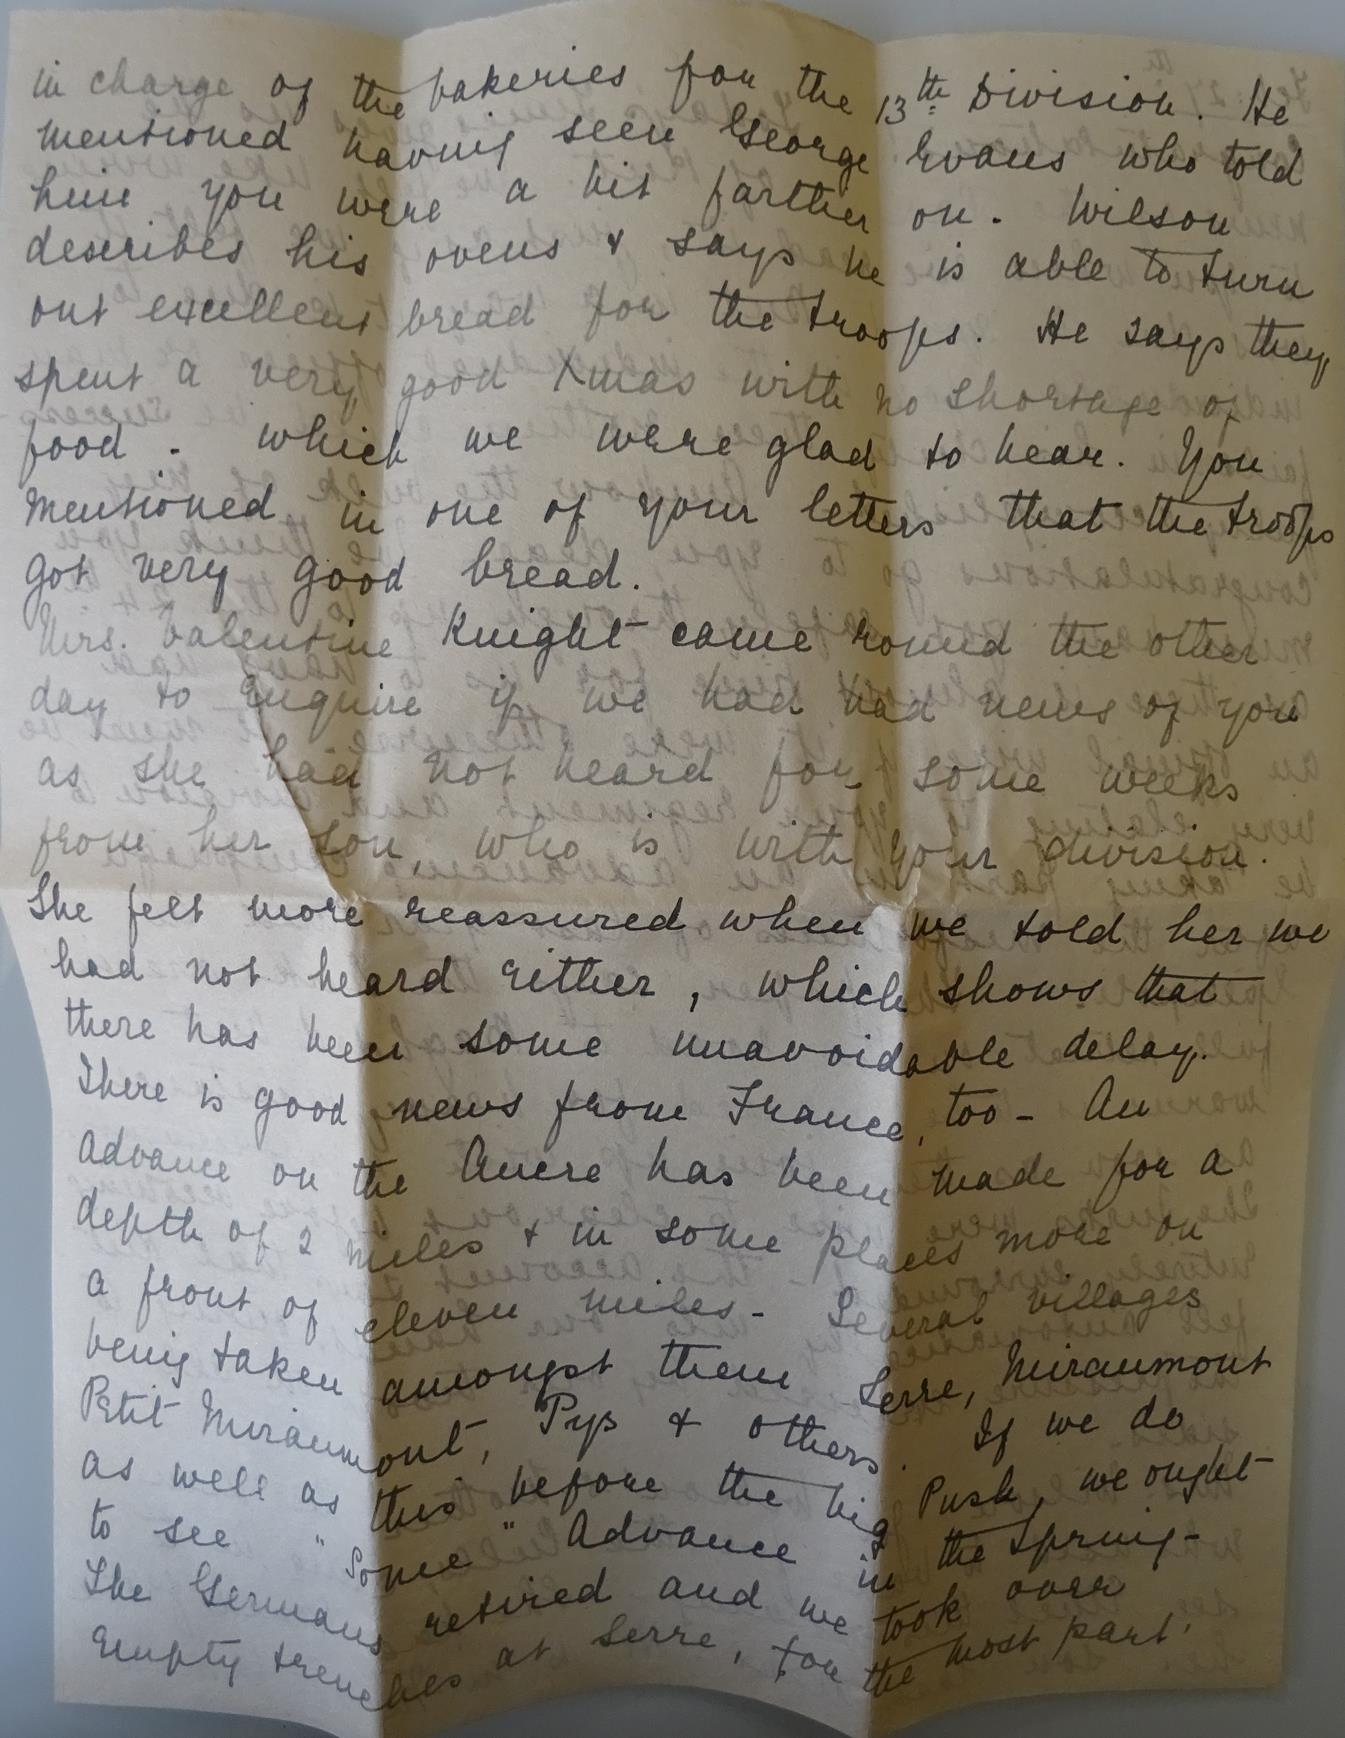 in charge of the bakeries for the 13th Division. He
mentioned having seen George Evans who told
him you were a bit farther on. Wilson
describes his ovens & says he is able to turn
out excellent bread for the troops. He says they
spent a very good Xmas with no shortage of
food. which we were glad to hear. You
mentioned in one of your letters that the troops
got very good bread.
Mrs. Valentine Knight came round the other
day to enquire if we had had news of you
as she had not heard for some weeks
from her son, who is with your division.
She felt more reassured when we told her we
had not heard either, which shows that
there has been some unavoidable delay.
There is good news from France, too - An
Advance on the Ancre has been made for a
depth of 2 miles & in some places more on
a front of eleven miles - Several villages
being taken amongst them Serre, Miraumont
Petit Miraumont, Pys & others. If we do
as well as this before the big Push, we ought
to see "some" Advance in the Spring -
The Germans retired and we took over
empty trenches at Serre, for the most part.